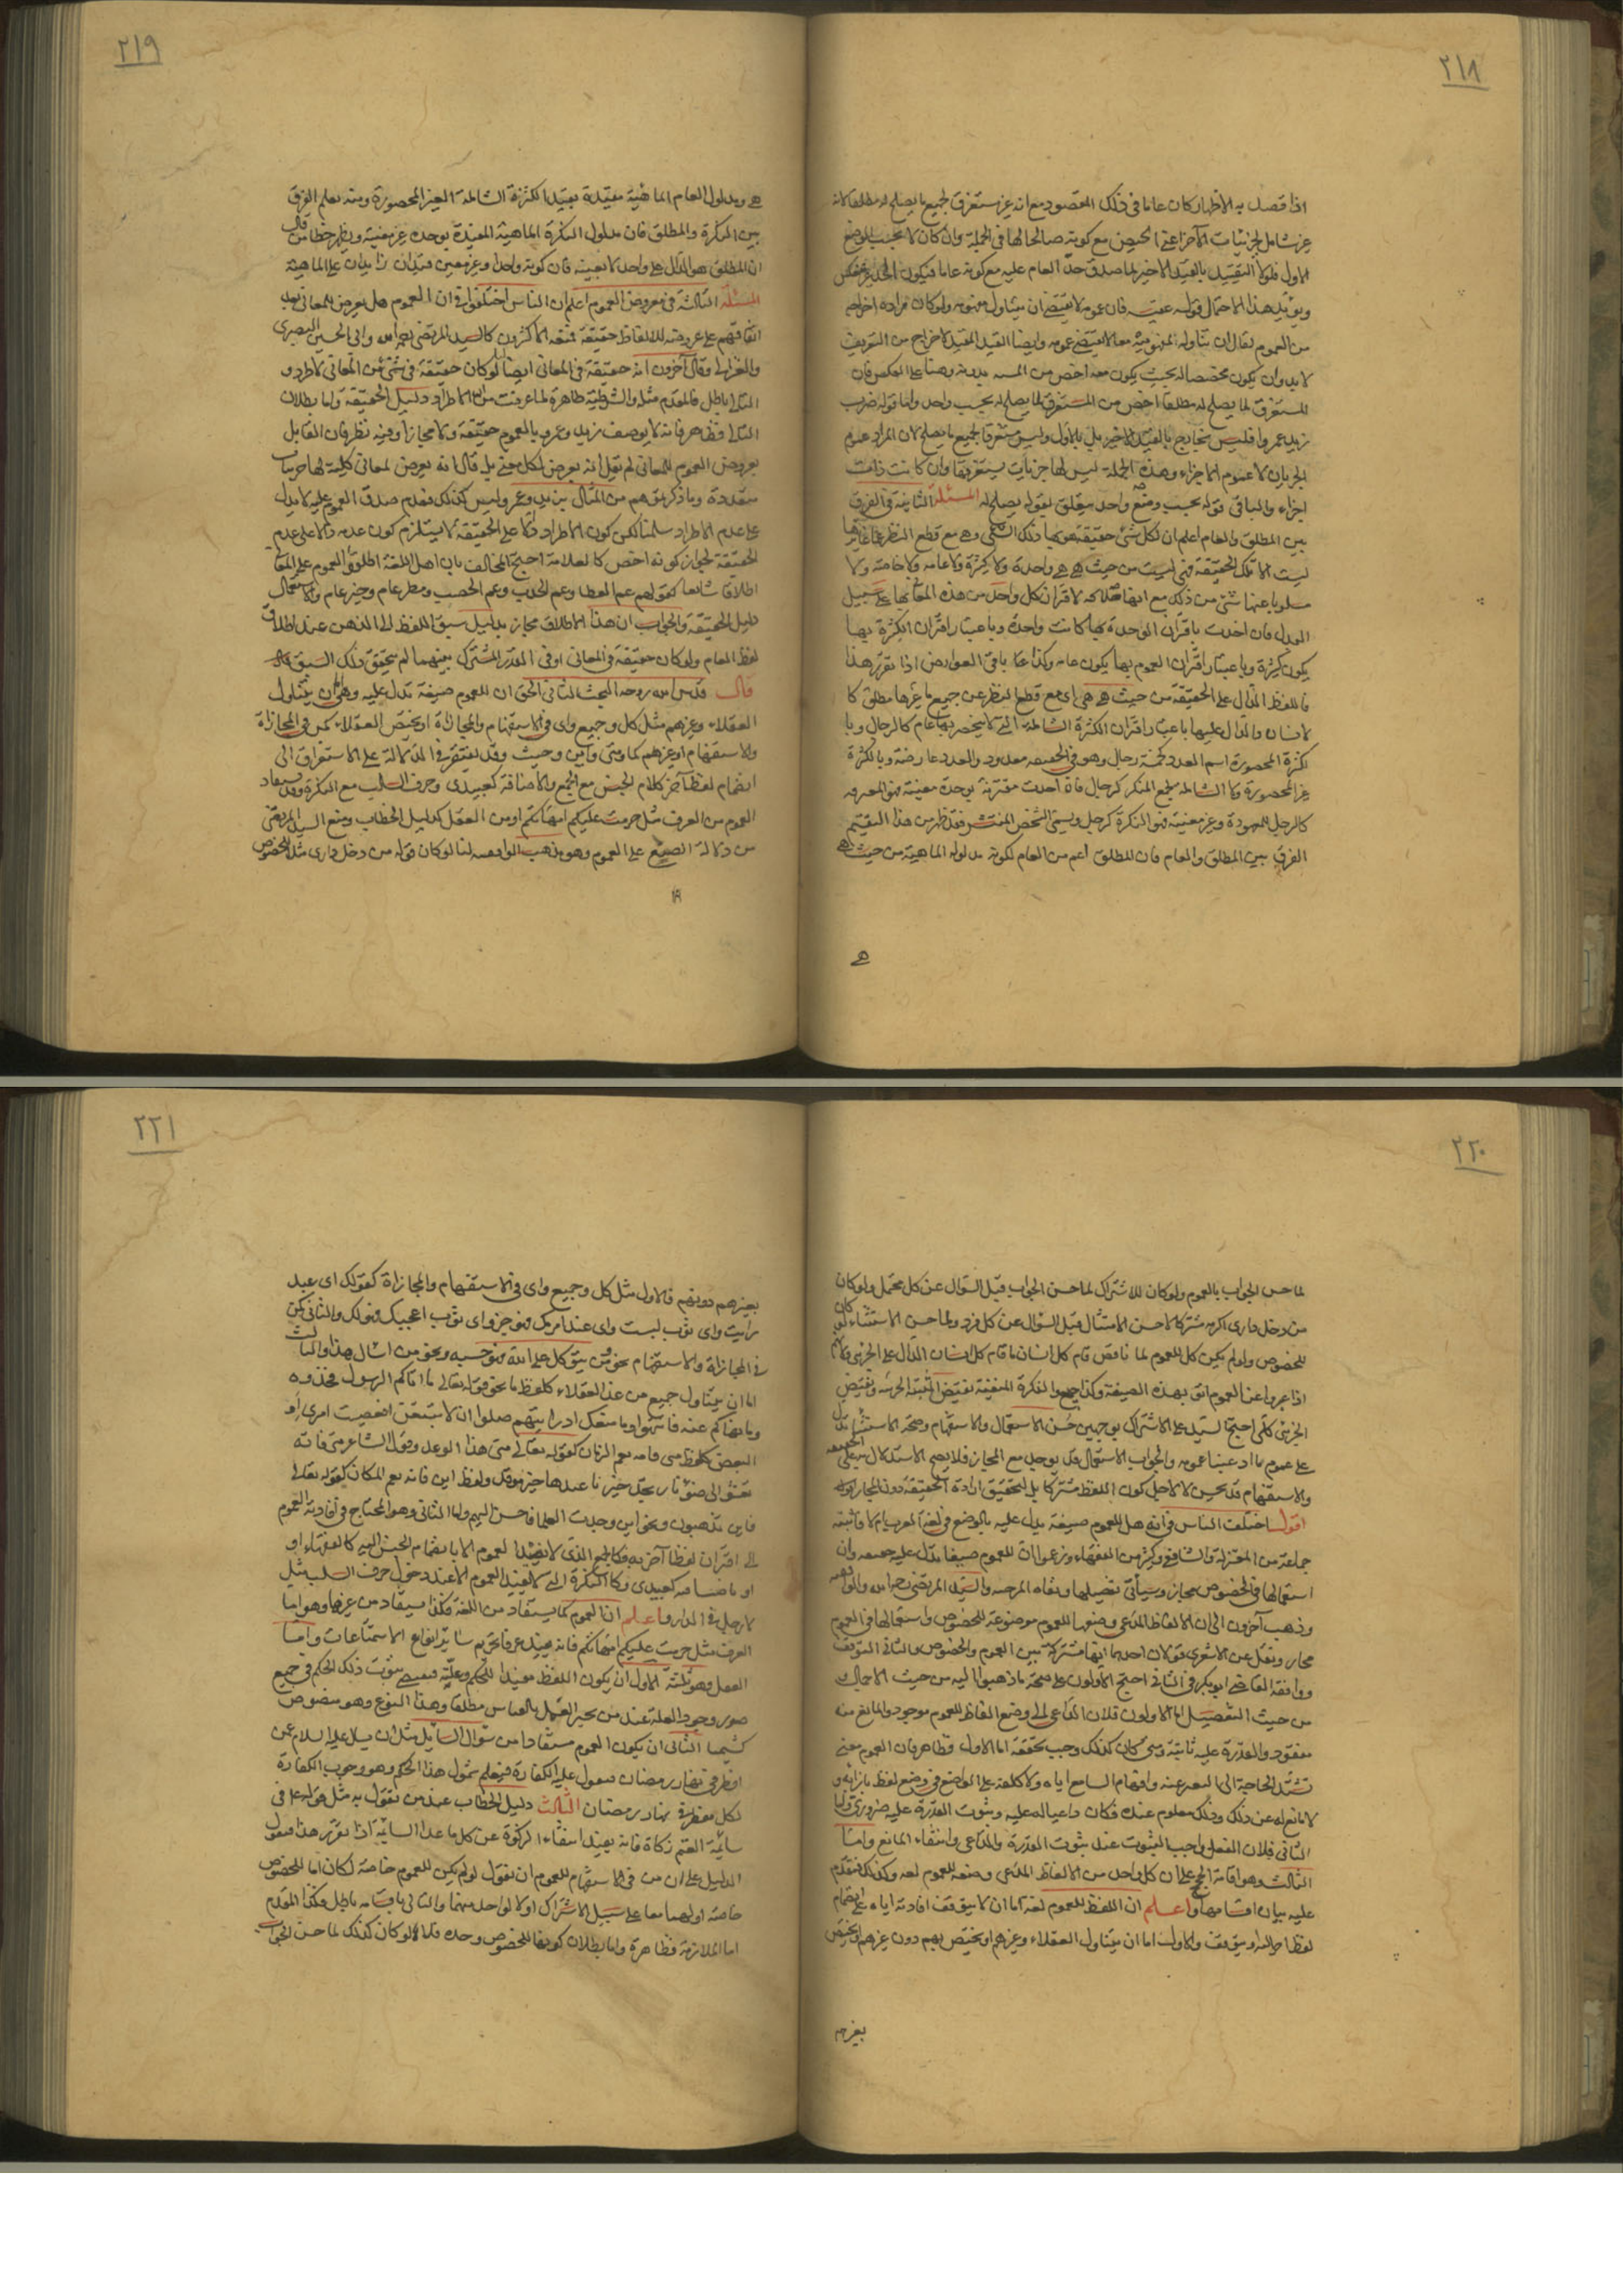 ٢١٨
اذا قصد به الاظهار كان عاما في ذلك المقصود مع انه غير مستغرق لجميع ما يصلح له مطلقا لانه
غير شامل لجزئيات الآخر اعني الحيض مع كونه صالحا لها في الجملة وان كان لا بحسب الوضع
الاول فلولا التقييد بالقيد الاخير لما صدق حد العام عليه مع كونه عاما فيكون الحد غير منعكس
ويؤيد هذا الاحتمال قوله عقيبه فان عمومه لا يقتضي ان يتناول مفهوميه ولو كان مراده اخراجه
من العموم لقال ان تناوله لمفهوميه معا لا يقتضي عمومه وايضا القيد المقيد لاخراج من التعريف
لابد وان يكون مخصصا له بحيث يكون معه اخص من بدونه وهنا على العكس فان
المستغرق لما يصلح له مطلقا اخص من المستغرق لما يصلح له بحسب واحد واما قوله ضرب
زيد عمروا فليس بخارج بالقيد الاخير بل بالاول وليس مستغرقا لجميع ما يصلح لان المراد عموم
الجزئيات لا عموم الاجزاء وهذه الجملة ليس لها جزئيات يستغرقها وان كانت ذات
اجزاء والباقي قوله بحسب وضع واحد متعلق بقوله يصلح له المسئلة الثانية في الفرق
بين المطلق والعام اعلم ان لكل شئ حقيقة هو بها ذلك الشئ وهي مع قطع النظر عما غايرها
ليست الا تلك الحقيقة فهي ليست من حيث هي هي واحدة ولا كثيرة ولا عامة ولا خاصة ولا
مسلوبا عنها شئ من ذلك مع انها صالحة لاقتران كل واحد من هذه المعاني بها على سبيل
البدل فان اخذت باقتران الوحدة بها كانت واحدة وباعتبار اقتران الكثرة بها
يكون كثيرة وباعتبار اقتران العموم بها يكون عامة وكذا على باقي العوارض اذا تقرر هذا
فاللفظ الدال على الحقيقة من حيث هي هي اي مع قطع النظر عن جميع ما يغايرها مطلق كا
لانسان والدال عليها باعتبار اقتران الكثرة الشاملة التي لا ينحصر بها عام كالرجال وبا
لكثرة المحصورة اسم العدد كخمسة رجال وهو في الحقيقة معدود والعدد عارضة وبالكثرة
غير المحصورة ولا الشاملة الجمع المنكر كرجال فان اخذت مقترنة بوحدة معينة فهو المعرفة
كالرجل المعهود وغير معينة فهو النكرة كرجل ويسمى الشخص المنتشر فقد ظهر من هذا التقسيم
الفرق بين المطلق والعام فان المطلق اعم من العام لكونه مدلوله الماهية من حيث هي
هي
٢١٩
هي ومدلول العام الماهية مقيدة بقيد الكثرة الشاملة الغير المحصورة ومنه يعلم الفرق
بين النكرة والمطلق فان مدلول النكرة الماهية المقيدة بوحدة غير معينة ويظهر خطأ من قال
ان المطلق هو الدال على واحد لا بعينه فان كونه واحدا وغير معين قيدان زايدان على الماهية
المسئلة الثالثة في معروض العموم اعلم ان الناس اختلفوا في ان العموم هل يعرض للمعاني بعد
اتفاقهم على عروضه للالفاظ حقيقة فمنعه الاكثرون كالسيد المرتضى رحمه الله وابي الحسين البصري
والغزالي وقال آخرون انه حقيقة في المعاني ايضا لنا لو كان حقيقة في شئ من المعاني لاطرد و
التالي باطل فالمقدم مثله والشرطية ظاهرة لما عرفت من ان الاطراد دليل الحقيقة واما بطلان
التالي فظاهر فانه لا يوصف زيد وعمرو بالعموم حقيقة ولا مجازا وفيه نظر فان القايل
بعروض العموم للمعاني لم يقل انه يعرض لكل معنى بل قال انه يعرض لمعاني كلية لها جزئيات
متعددة وما ذكرتموهم من المثال بزيد وعمرو ليس كذلك فعدم صدق العموم عليه لا يدل
على عدم الاطراد سلمنا لكن كون الاطراد دالا على الحقيقة لا يستلزم كون عدمه دالا على عدم
الحقيقة لجواز كونه اخص كالعلامة احتج المخالف بان اهل اللغة اطلقوا العموم على المعاني
اطلاقا شايعا كقولهم عم العطاء وعم الجدب وعم الخصب ومطر عام وخير عام والاستعمال
دليل الحقيقة والجواب ان هذا الاطلاق مجاز بدليل سبق اللفظ الى الذهن عند اطلاق
لفظ العام ولو كان حقيقة في المعاني او في القدر المشترك بينهما لم يتحقق ذلك السبق
قال قدس الله روحه البحث الثاني الحق ان للعموم صيغة تدل عليه وهي اما ان يتناول
العقلاء وغيرهم مثل كل وجميع واي في الاستفهام والمجازاة او يختص العقلاء كمن في المجازاة
والاستفهام او غيرهم كما ومتى واين وحيث وقد يفتقر في الدلالة على الاستغراق الى
انضمام لفظ آخر كلام الجنس مع الجمع والاضافة كعبيدي وحرف السلب مع النكرة وقد يستفاد
العموم من العرف مثل حرمت عليكم امهاتكم او من العقل كدليل الخطاب ومنع السيد المرتضى
من دلالة الصيغ على العموم وهو مذهب الواقفية لنا لو كان قوله من دخل داري مثلا للخصوص
٢٢٠
لما حسن الجواب بالعموم ولو كان للاشتراك لما حسن الجواب قبل السؤال عن كل محتمل ولو كان
من دخل داري اكرمه مشتركا لما حسن الامتثال قبل السؤال عن كل فرد ولما حسن الاستثناء لو كان
للخصوص ولو لم يكن كل للعموم لما ناقض قام كل انسان ما قام كل انسان الدال على الجزئي ولان
اذا عبروا عن العموم اتوا بهذه الصيغة وكذا جميع والنكرة المنفية نقيض المثبتة الجزئية ونقيض
الجزئي كلي احتج السيد على الاشتراك بوجهين حسن الاستعمال والاستفهام وصحة الاستثناء تدل
على عموم ما ادعينا عمومه والجواب الاستعمال قد يوجد مع المجاز فلا يصح الاستدلال به على الحقيقة
والاستفهام قد يحسن لا لاجل كون اللفظ مشتركا بل لتحقيق ارادة الحقيقة دون المجاز
اقول اختلف الناس في انه هل للعموم صيغة تدل عليه بالوضع في لغة العرب ام لا فاثبته
جماعة من المعتزلة والشافعي وكثير من الفقهاء وزعموا ان للعموم صيغا تدل عليه حقيقة وان
استعمالها في الخصوص مجاز وسيأتي تفصيلها ونفاه المرجئة والسيد المرتضى رحمه الله والواقفية
وذهب آخرون الى ان الالفاظ المدعى وضعها للعموم موضوعة للخصوص واستعمالها في العموم
مجاز ونقل عن الاشعري قولان احدهما انها مشتركة بين العموم والخصوص والثاني التوقف
ووافقه القاضي ابو بكر في الثاني احتج الاولون على صحة ما ذهبوا اليه من حيث الاجمال و
من حيث التفصيل اما الاول فلان الداعي الى وضع الفاظ للعموم موجود والمانع منه
مفقود والقدرة عليه ثابتة ومتى كان كذلك وجب تحققه اما الاول فظاهر فان العموم معنى
تشتد الحاجة الى التعبير عنه وافهام السامع اياه ولا كلفة على الواضع في وضع لفظ بازائه و
لا مانع له عن ذلك وذلك معلوم عنده فكان داعيا له عليه وثبوت القدرة عليه ضروري واما
الثاني فلان الفعل واجب الثبوت عند ثبوت القدرة والداعي وانتفاء المانع واما
الثالث وهو اقامة الحجج على ان كل واحد من الالفاظ المدعى وضعه للعموم لغة وكذلك فيتقدم
عليه بيان اقسامها واعلم ان اللفظ للعموم لغة اما ان لا يتوقف افادته اياه على انضمام
لفظ اخر اليه او يتوقف والاول اما ان يتناول العقلاء وغيرهم او يختص بهم دون غيرهم او يختص
بغيرهم
٢٢١
بغيرهم دونهم فالاول مثل كل وجميع واي في الاستفهام والمجازاة كقولك اي عبد
رايت واي ثوب لبست واي عبد امرك فهو حر واي ثوب اعجبك فهو لك والثاني كمن
في المجازاة والاستفهام نحو من يتوكل على الله فهو حسبه ونحو من اشال هذا والثالث
اما ان يتناول جميع من عدا العقلاء كلفظ ما نحو قوله تعالى ما اتاكم الرسول فخذوه
وما نهاكم عنه فانتهوا وما منعك اذ رايتهم ضلوا ان لا تتبعن افعصيت امري او
البعض كلفظ متى فانه يعم الزمان كقوله تعالى متى هذا الوعد وقول الشاعر متى تاته
تعشو الى ضوء ناره تجد خير نار عندها خير موقد ولفظ اين فانه يعم المكان كقوله تعالى
فاين تذهبون ونحو اين وجدت العلماء فاحسن اليهم واما الثاني وهو المحتاج في افادته العموم
الى اقتران لفظ آخر به فكالجمع الذي لا يفيد العموم الا بانضمام لام الجنس اليه كالفقهاء او
او باضافته كعبيدي وكالنكرة التي لا يفيد العموم الا عند دخول حرف السلب مثل
لا رجل في الدار واعلم ان العموم كما يستفاد من اللغة فكذا يستفاد من غيرها وهو اما
العرف مثل حرمت عليكم امهاتكم فانه يفيد عرفا تحريم ساير انواع الاستمتاعات واما
العقل وهو ثلثة الاول ان يكون اللفظ مفيدا للحكم وعلته فيقتضي ثبوت ذلك الحكم في جميع
صور وجود العلة عند من يجيز العمل بالقياس مطلقا وهذا النوع وهو منصوص
الثاني ان يكون العموم مستفادا من سؤال السائل مثل ان يسئل عليه السلام عن
افطر في نهار رمضان فيقول عليه الكفارة فيعلم شمول هذا الحكم وهو وجوب الكفارة
لكل مفطر في نهار رمضان الثالث دليل الخطاب عند من يقول به مثل قوله عليه في
سائمة الغنم زكاة فانه يفيد انتفاء الزكوة عن كل ما عدا السائمة اذا تقرر هذا فنقول
الدليل على ان من في الاستفهام للعموم ان نقول لو لم يكن للعموم خاصة لكان اما للخصوص
خاصة او لهما معا على سبيل الاشتراك او لا لواحد منهما والتالي باقسامه باطل فكذا المقدم
اما الملازمة فظاهرة واما بطلان كونها للخصوص وحده فلانه لو كان كذلك لما حسن الجواب